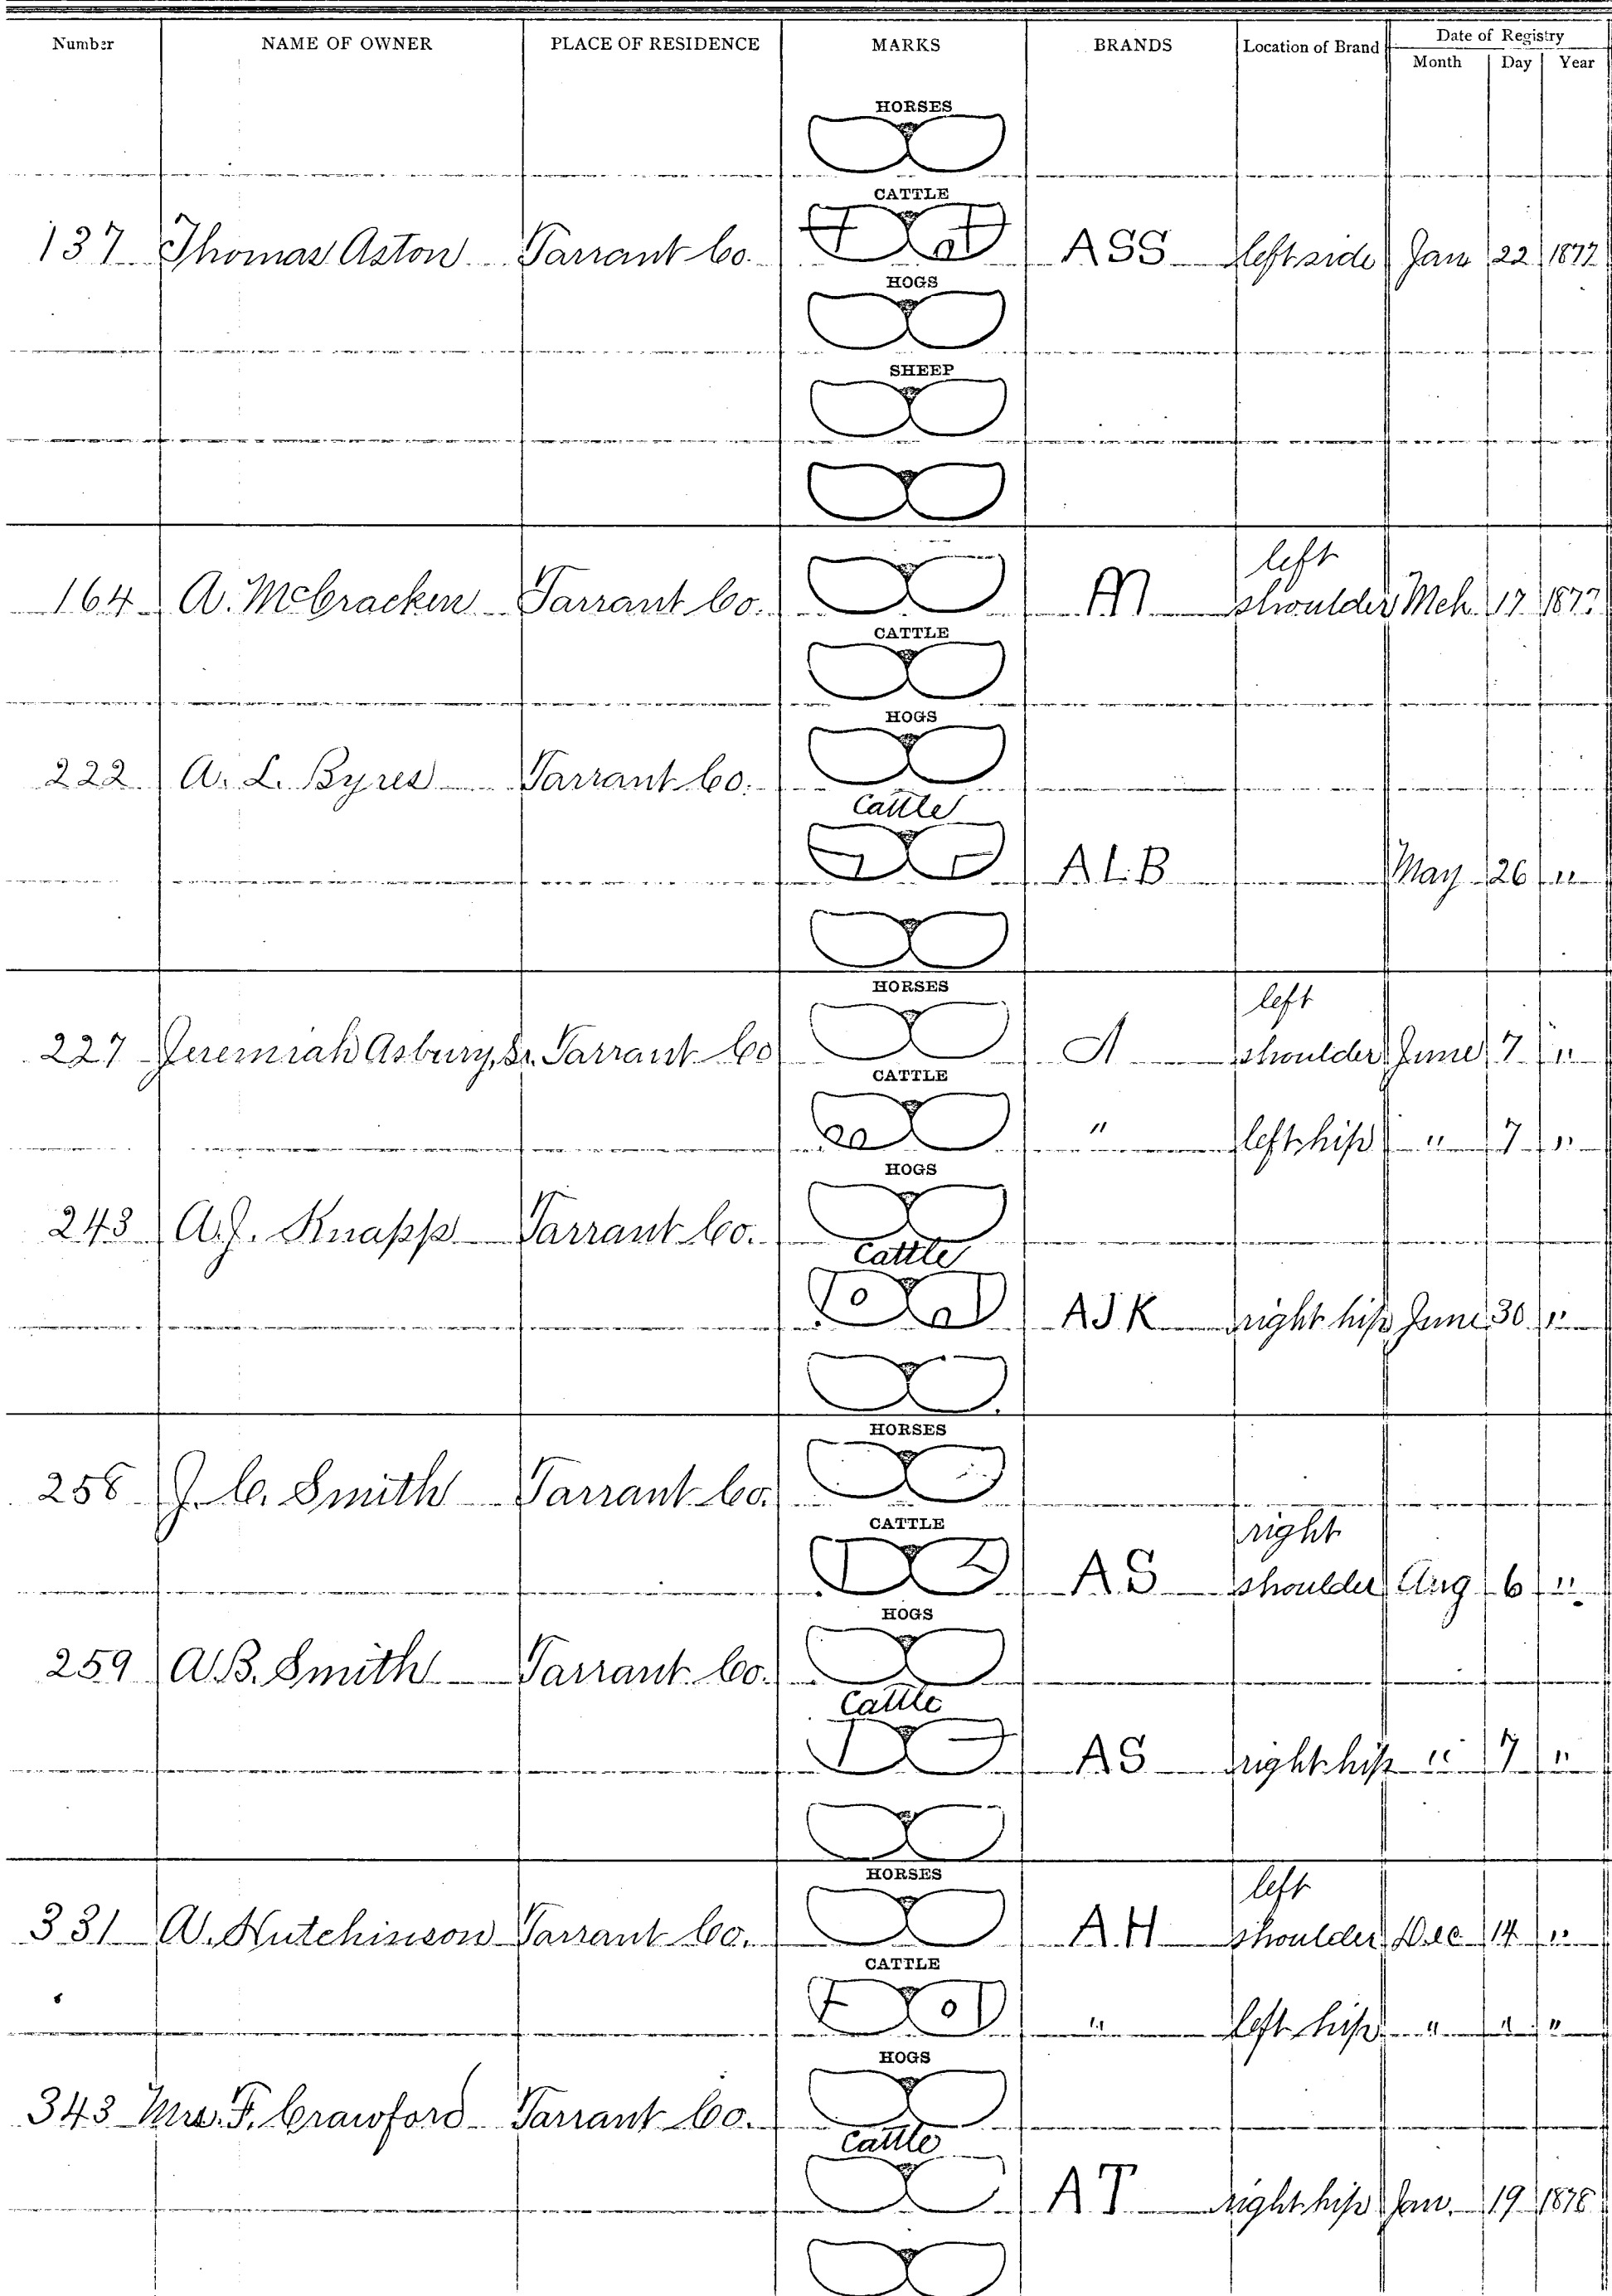 Number NAME OF OWNER PLACE OF RESIDENCE MARKS BRANDS Location of Brand Date of Registry
Month Day Year
HORSES
CATTLE
137 Thomas Aston Tarrant Co. ASS left side Jan 22 1877
HOGS
SHEEP
left
164 A. McCracken Tarrant Co. shoulder Mch. 17 1877
CATTLE
HOGS
222 A. L. Byres Tarrant Co.
Cattle
A L B May 26 "
HORSES
left
227 Jeremiah Asbury, Sr. Tarrant Co A shoulder June 7 "
CATTLE
" left hip " 7 "
HOGS
243 A.J. Knapp Tarrant Co.
Cattle
A J K right hip June 30 "
HORSES
258 J. C. Smith Tarrant Co.
CATTLE
right
A S shoulder Aug 6 "
HOGS
259 A.B. Smith Tarrant Co.
Cattle
A S right hip " 7 "
HORSES
left
331 A. Hutchinson Tarrant Co. A H shoulder Dec 14 "
CATTLE
" left hip " " "
HOGS
343 Mrs. F. Crawford Tarrant Co.
Cattle
A T right hip Jan. 19 1878